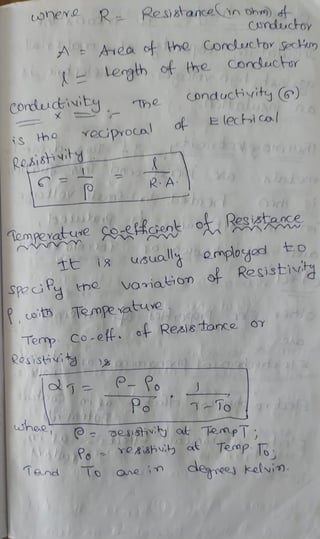 where R = Resistance (in ohm) of
conductor
A = Area of the Conductor section
l = Length of the conductor
conductivity :- The conductivity (σ)
is the reciprocal of Electrical
Resistivity
σ = 1/ρ = l/R.A
Temperature co-efficient of Resistance
It is usually employed to
specify the variation of Resistivity
ρ, with Temperature.
Temp. Co-eff. of Resistance or
Resistivity is
α_T = (ρ - ρ₀)/ρ₀ . 1/(T - T₀)
where, ρ = resistivity at Temp T;
ρ₀ = resistivity at Temp. T₀;
T and T₀ are in degrees kelvin.